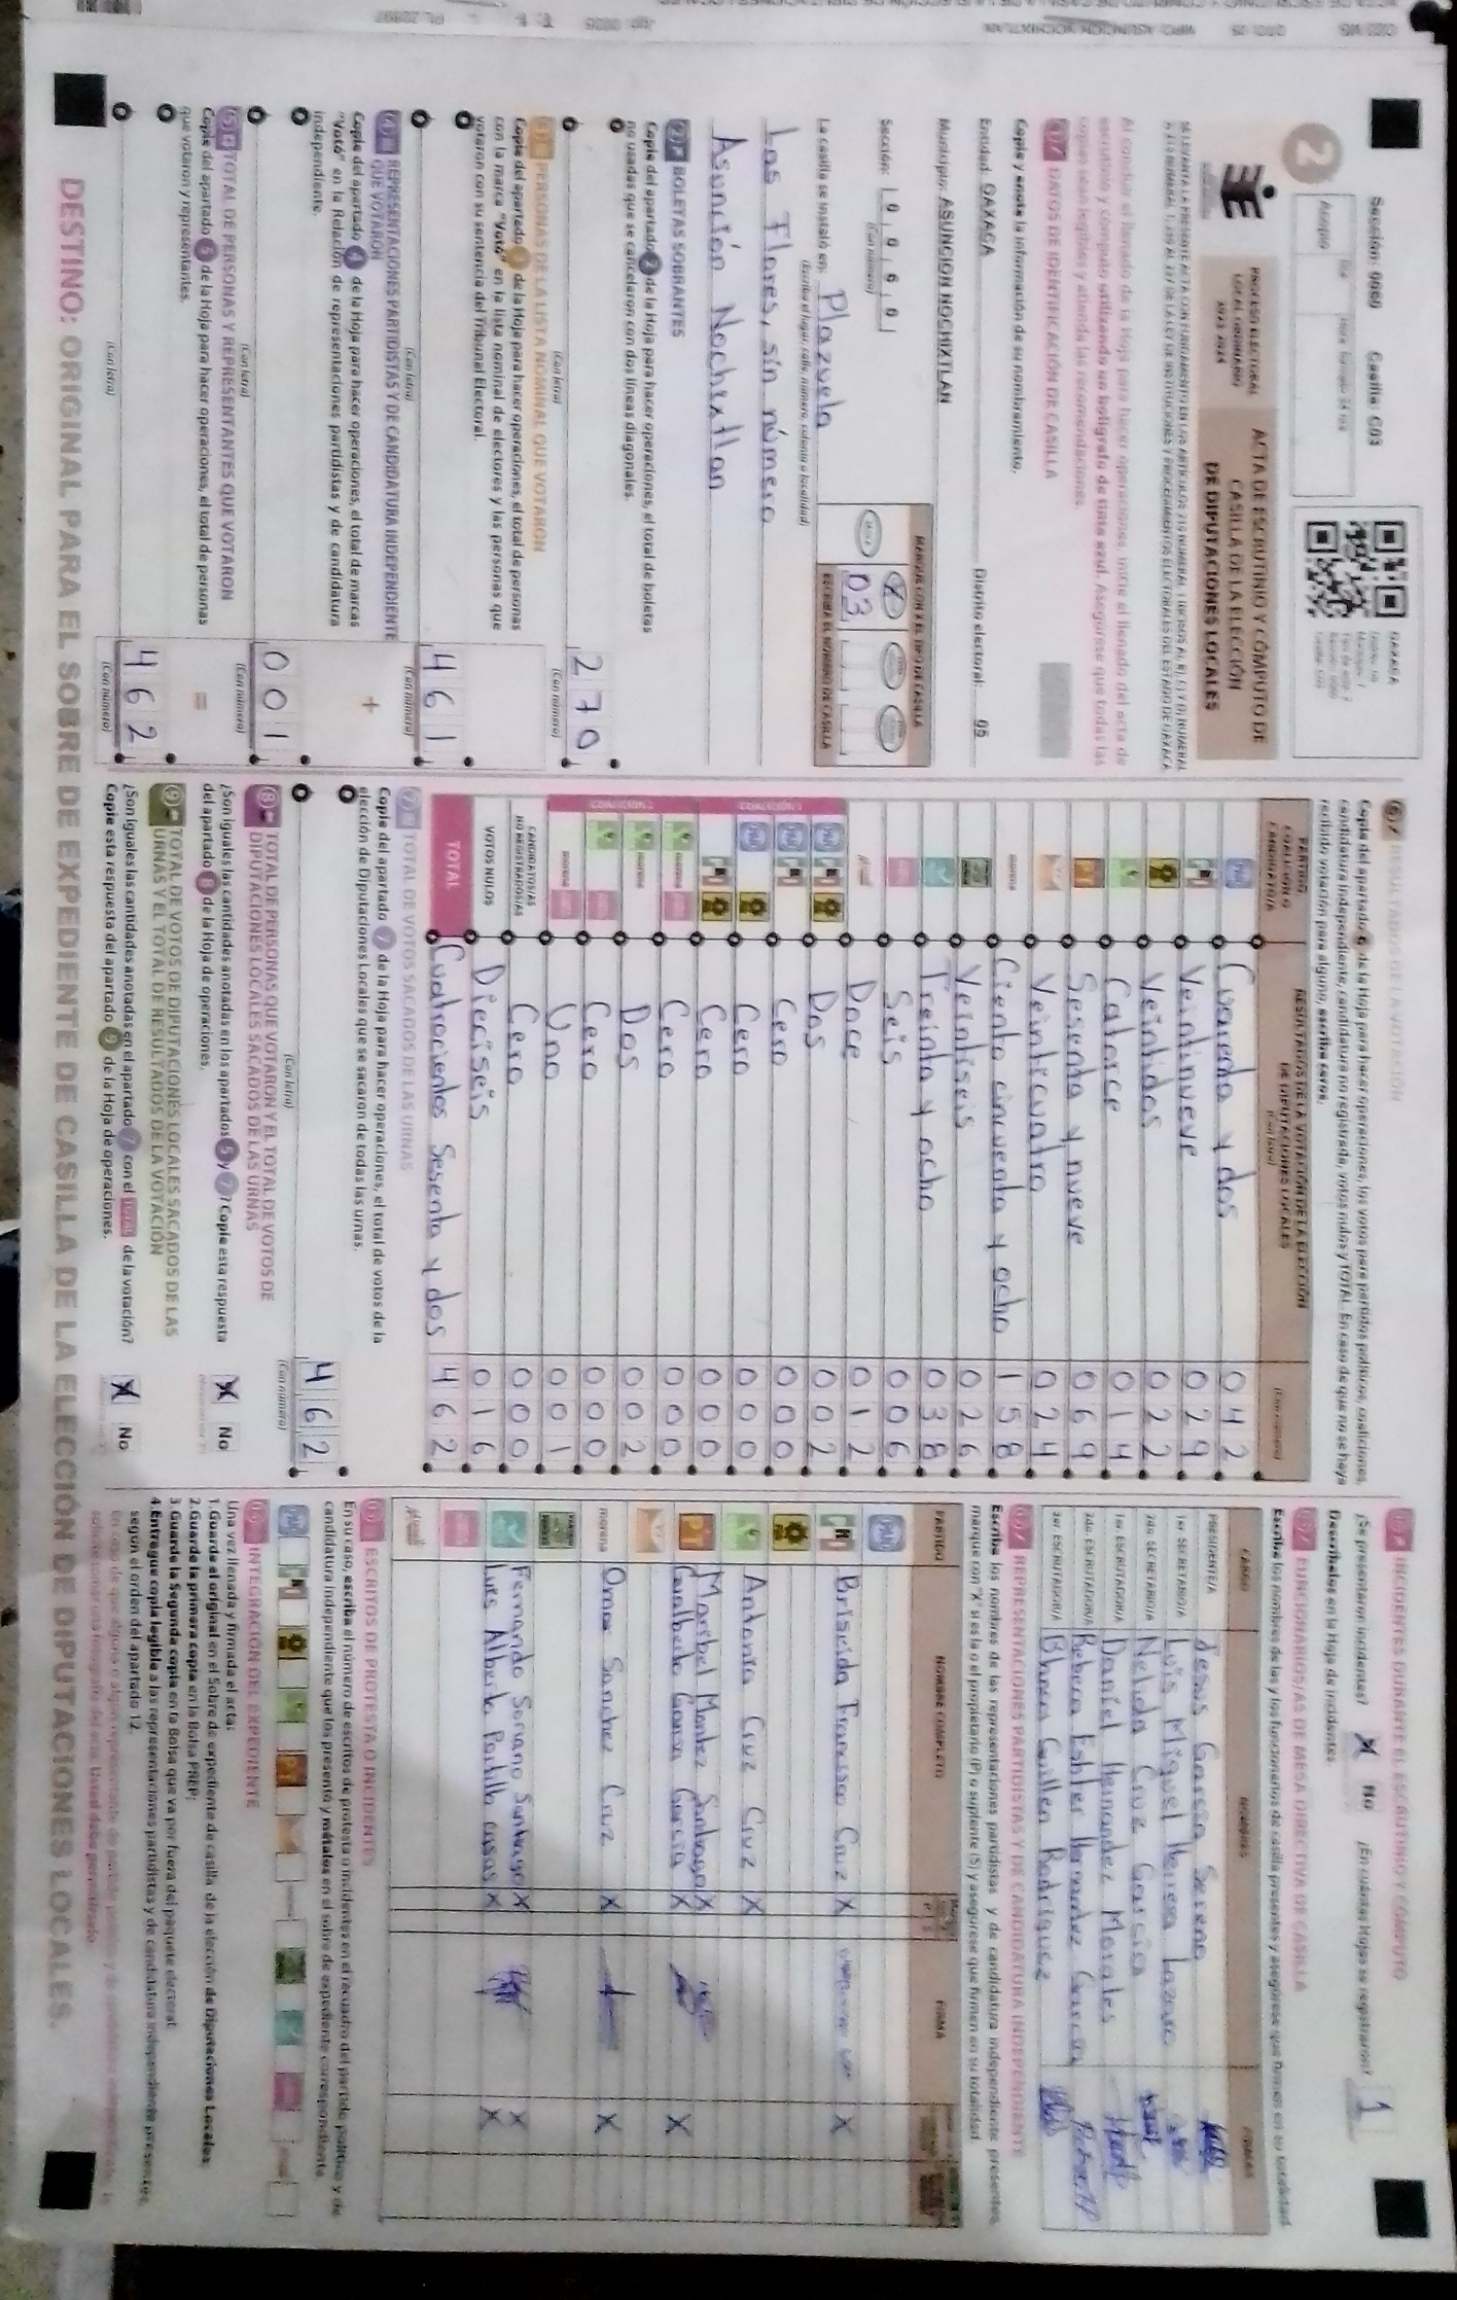 Sección: 0060 Casilla: C03
OAXACA
2
Acopio
PROCESO ELECTORAL
LOCAL ORDINARIO
2023-2024
ACTA DE ESCRUTINIO Y CÓMPUTO DE
CASILLA DE LA ELECCIÓN
DE DIPUTACIONES LOCALES
Al concluir el llenado de la Hoja para hacer operaciones, inicie el llenado del acta de
escrutinio y cómputo utilizando un bolígrafo de tinta azul. Asegúrese que todas las
copias sean legibles y atienda las recomendaciones.
1 DATOS DE IDENTIFICACIÓN DE CASILLA
Copie y anote la información de su nombramiento.
Entidad: OAXACA Distrito electoral: 05
Municipio: ASUNCIÓN NOCHIXTLÁN
Sección: 0 0 6 0
(Con número)
MARQUE CON X EL TIPO DE CASILLA
X
ESCRIBA EL NÚMERO DE CASILLA
03
La casilla se instaló en: Plazuela
(Escriba el lugar, calle, número, colonia o localidad)
Las Flores, sin número
Asunción Nochixtlan
2 BOLETAS SOBRANTES
Copie del apartado 2 de la Hoja para hacer operaciones, el total de boletas
no usadas que se cancelaron con dos líneas diagonales.
270
(Con letra) (Con número)
3 PERSONAS DE LA LISTA NOMINAL QUE VOTARON
Copie del apartado 3 de la Hoja para hacer operaciones, el total de personas
con la marca "Votó" en la lista nominal de electores y las personas que
votaron con su sentencia del Tribunal Electoral.
461
(Con letra) (Con número)
4 REPRESENTACIONES PARTIDISTAS Y DE CANDIDATURA INDEPENDIENTE
QUE VOTARON
Copie del apartado 4 de la Hoja para hacer operaciones, el total de marcas
"Votó" en la Relación de representaciones partidistas y de candidatura
independiente.
+
001
(Con letra) (Con número)
5 TOTAL DE PERSONAS Y REPRESENTANTES QUE VOTARON
Copie del apartado 5 de la Hoja para hacer operaciones, el total de personas
que votaron y representantes.
=
462
(Con letra) (Con número)
6 RESULTADOS DE LA VOTACIÓN
Copie del apartado 6 de la Hoja para hacer operaciones, los votos para partidos políticos, coaliciones,
candidatura independiente, candidatura no registrada, votos nulos y TOTAL. En caso de que no se haya
recibido votación para alguno, escriba ceros.
PARTIDO
COALICIÓN O
CANDIDATO/A
RESULTADOS DE LA VOTACIÓN DE LA ELECCIÓN
DE DIPUTACIONES LOCALES
(Con letra)
(Con número)
PAN Cuarenta y dos 042
PRI Veintinueve 029
PRD Veintidos 022
Catorce 014
PT Sesenta y nueve 069
Veinticuatro 024
morena Ciento cincuenta y ocho 158
Veintiseis 026
Treinta y ocho 038
Seis 006
Doce 012
PAN PRI PRD Dos 002
PAN PRI Cero 000
PAN PRD Cero 000
PRI PRD Cero 000
morena Cero 000
morena Dos 002
Cero 000
morena Uno 001
CANDIDATOS/AS
NO REGISTRADOS/AS Cero 000
VOTOS NULOS Dieciseis 016
TOTAL Cuatrocientos Sesenta y dos 462
7 TOTAL DE VOTOS SACADOS DE LAS URNAS
Copie del apartado 7 de la Hoja para hacer operaciones, el total de votos de la
elección de Diputaciones Locales que se sacaron de todas las urnas.
462
(Con letra) (Con número)
8 TOTAL DE PERSONAS QUE VOTARON Y EL TOTAL DE VOTOS DE
DIPUTACIONES LOCALES SACADOS DE LAS URNAS
¿Son iguales las cantidades anotadas en los apartados 5 y 7? Copie esta respuesta
del apartado 8 de la Hoja de operaciones.
X No
9 TOTAL DE VOTOS DE DIPUTACIONES LOCALES SACADOS DE LAS
URNAS Y EL TOTAL DE RESULTADOS DE LA VOTACIÓN
¿Son iguales las cantidades anotadas en el apartado 7 con el TOTAL de la votación?
Copie esta respuesta del apartado 9 de la Hoja de operaciones.
X No
10 INCIDENTES DURANTE EL ESCRUTINIO Y CÓMPUTO
¿Se presentaron incidentes? X No ¿En cuántas Hojas se registraron? 1
Descríbalos en la Hoja de incidentes.
FUNCIONARIOS/AS DE MESA DIRECTIVA DE CASILLA
Escriba los nombres de las y los funcionarios de casilla presentes y asegúrese que firmen en su totalidad.
CARGO NOMBRES FIRMAS
PRESIDENTE/A Jesus Garcia Sereno
1er. SECRETARIO/A Luis Miguel Herrera Lazaro
2do. SECRETARIO/A Nelida Cruz Garcia
1er. ESCRUTADOR/A Daniel Hernandez Morales
2do. ESCRUTADOR/A Rebeca Eshter Hernandez Garcia
3er. ESCRUTADOR/A Blanca Guillen Rodriguez
REPRESENTACIONES PARTIDISTAS Y DE CANDIDATURA INDEPENDIENTE
Escriba los nombres de las representaciones partidistas y de candidatura independiente presentes,
marque con "X" si es la o el propietario (P) o suplente (S) y asegúrese que firmen en su totalidad.
PARTIDO NOMBRE COMPLETO FIRMA
PAN
PRI Briseida Francisco Cruz X X
PRD
Antonia Cruz Cruz X
PT Maribel Montez Santiago X
Gualberto Garcia X X
morena Omar Sanchez Cruz X X
Fernando Soriano Santiago X X
Luis Alberto Portillo casas X X
ESCRITOS DE PROTESTA O INCIDENTES
En su caso, escriba el número de escritos de protesta o incidentes en el recuadro del partido político y de
candidatura independiente que los presentó y métalos en el sobre de expediente correspondiente.
INTEGRACIÓN DEL EXPEDIENTE
Una vez llenada y firmada el acta:
1. Guarde el original en el Sobre de expediente de casilla de la elección de Diputaciones Locales.
2. Guarde la primera copia en la Bolsa PREP.
3. Guarde la Segunda copia en la Bolsa que va por fuera del paquete electoral.
4. Entregue copia legible a las representaciones partidistas y de candidatura independiente presentes,
según el orden del apartado 12.
DESTINO: ORIGINAL PARA EL SOBRE DE EXPEDIENTE DE CASILLA DE LA ELECCIÓN DE DIPUTACIONES LOCALES.